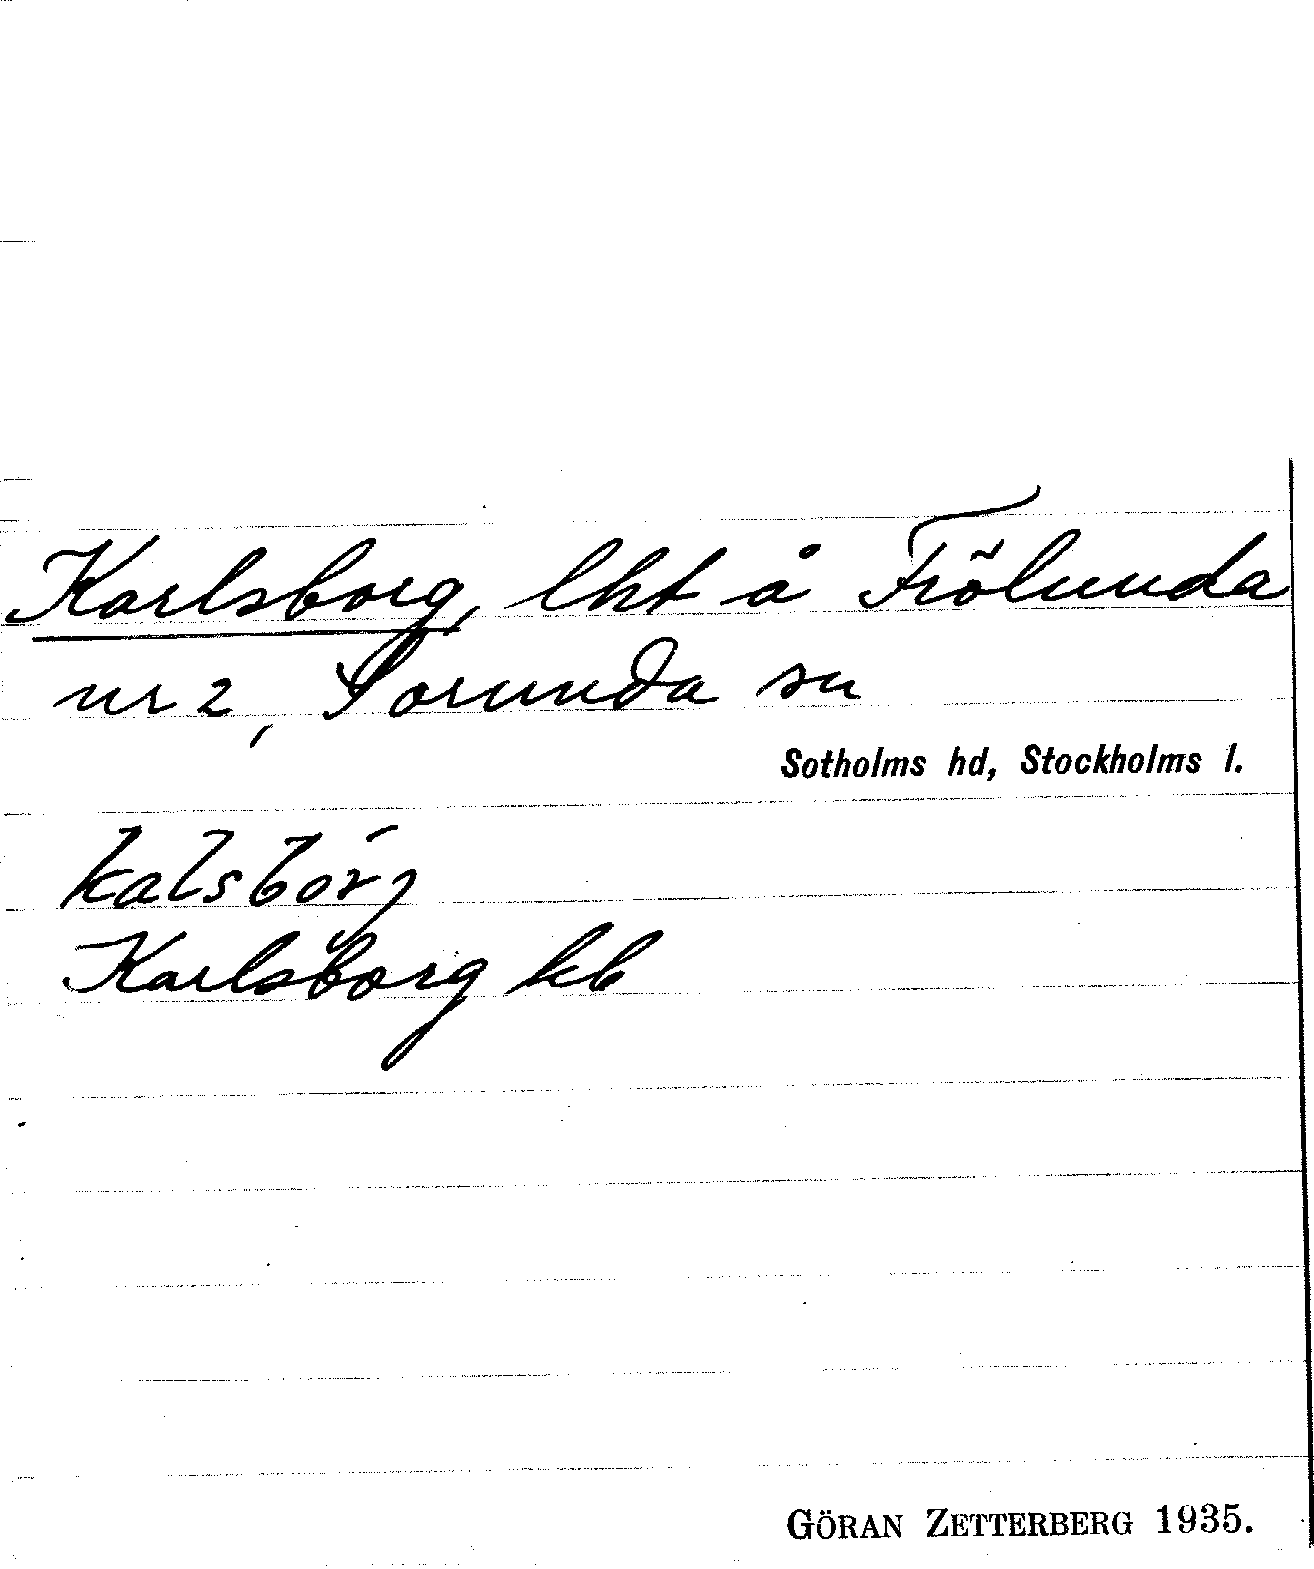 Karlsborg, lht å Frölunda
nr 2, Sorunda sn
Sotholms hd, Stockholms l.
Karlsborg kb
GÖRAN ZETTERBERG 1935.